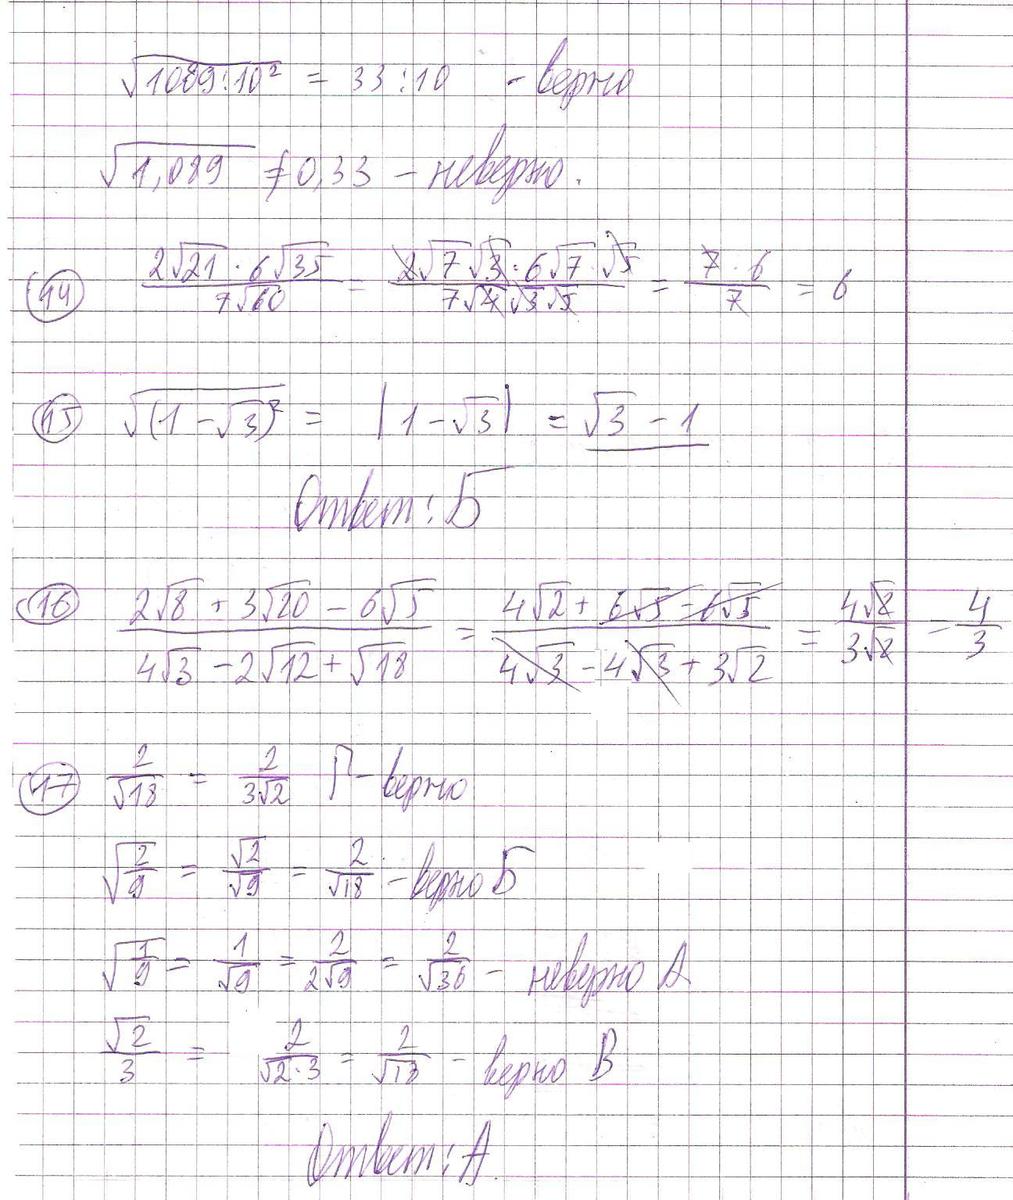 √(1089:10²) = 33:10 - верно
√(1,089) ≠ 0,33 - неверно.
14 (2√21 · 6√35)/(7√60) = (2√7√3 · 6√7 · √5)/(7√4√3√5) = (7 · 6)/7 = 6
15 √((1-√3)²) = |1-√3| = √3 - 1
Ответ: Б
16 (2√8 + 3√20 - 6√5)/(4√3 - 2√12 + √18) = (4√2 + 6√5 - 6√5)/(4√3 - 4√3 + 3√2) = (4√2)/(3√2) = 4/3
17 2/√18 = 2/(3√2) Г - верно
√(2/9) = √2/√9 = 2/√18 - верно Б
√(1/9) = 1/√9 = 2/(2√9) = 2/√36 - неверно А
√2/3 = 2/(√2·3) = 2/√18 - верно В
Ответ: А